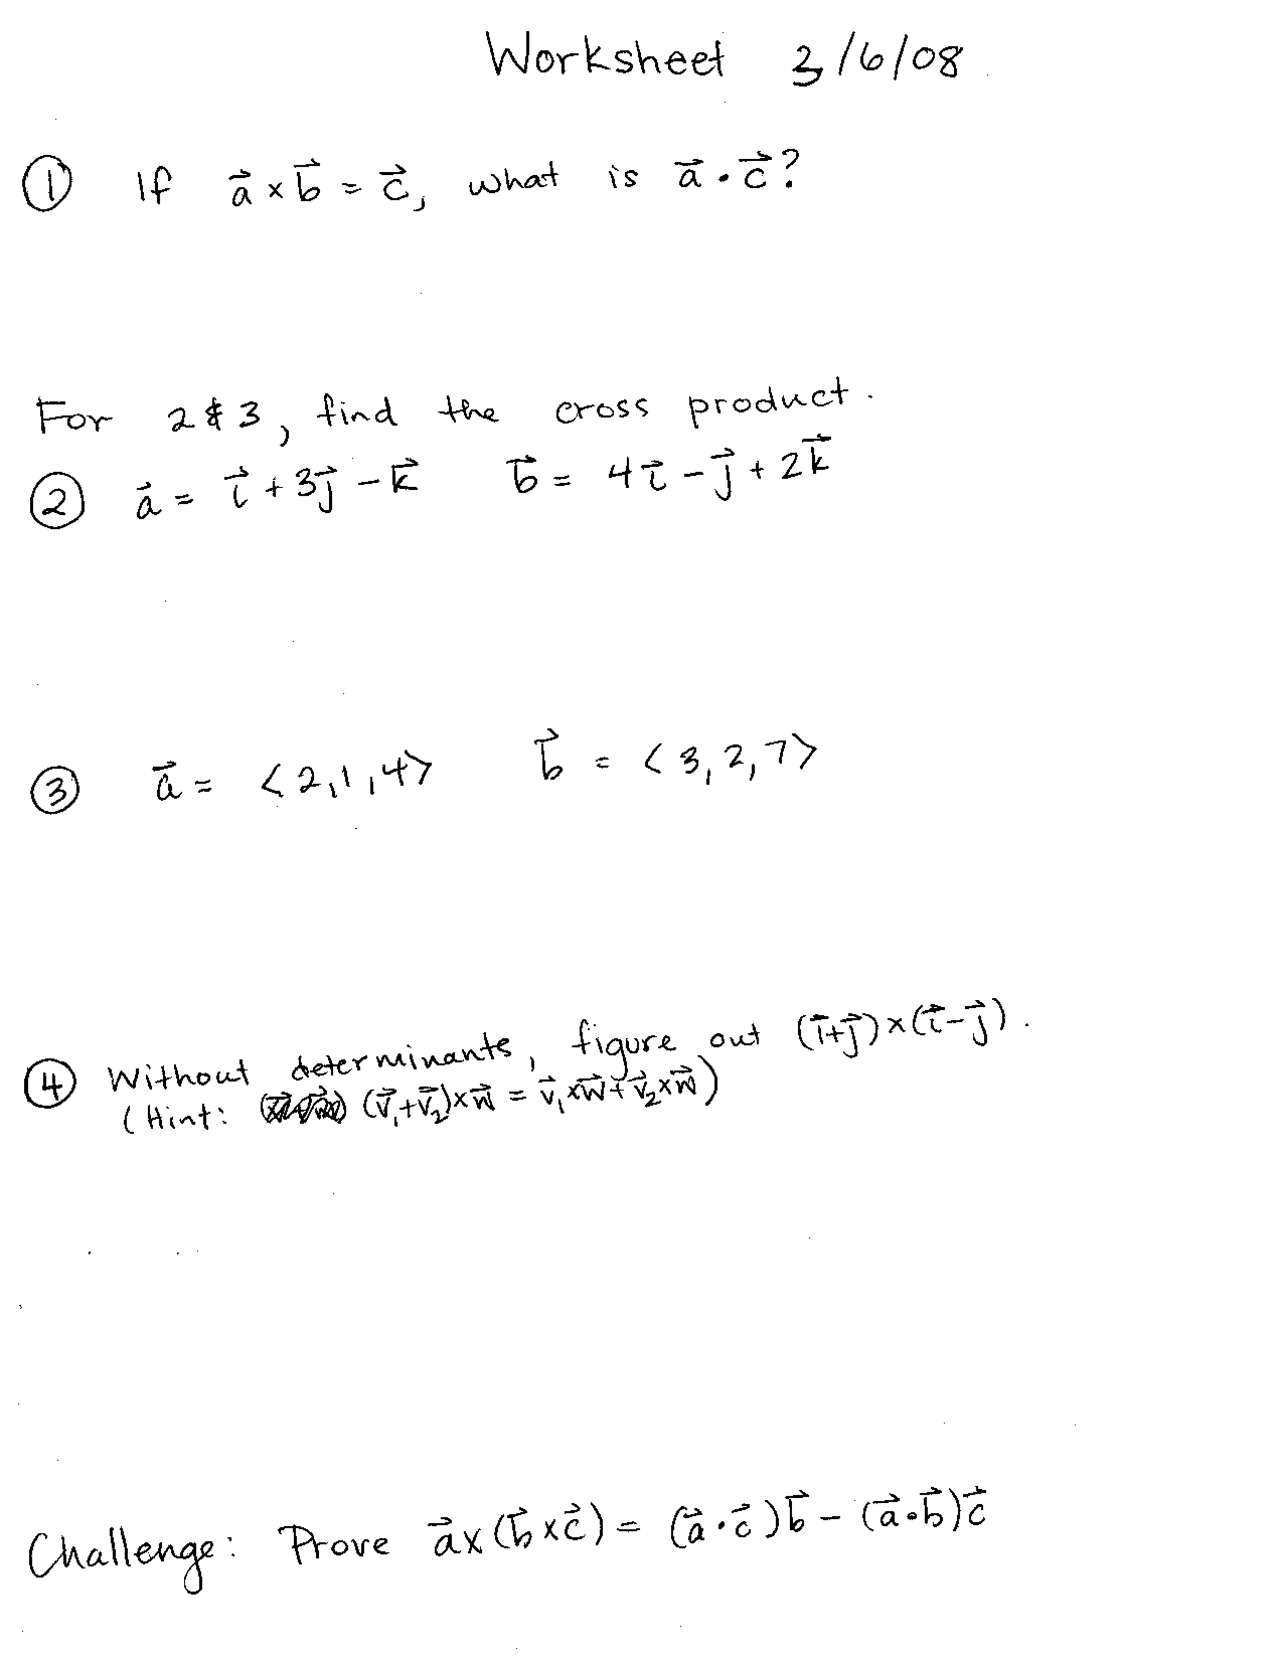 Worksheet 3/6/08
① If a⃗ × b⃗ = c⃗, what is a⃗ • c⃗?
For 2 & 3, find the cross product.
② a⃗ = i⃗ + 3j⃗ - k⃗ b⃗ = 4i⃗ - j⃗ + 2k⃗
③ a⃗ = <2,1,4> b⃗ = <3,2,7>
④ Without determinants, figure out (i⃗+j⃗)×(i⃗-j⃗).
(Hint: (v⃗₁+v⃗₂)×w⃗ = v⃗₁×w⃗+v⃗₂×w⃗)
Challenge: Prove a⃗×(b⃗×c⃗) = (a⃗•c⃗)b⃗ - (a⃗•b⃗)c⃗